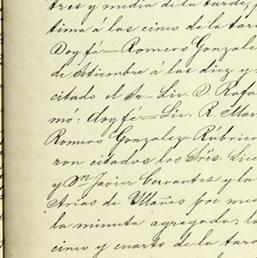 tres y media de la tarde,
tima á las cinco de la tar
Doy fé=Romero Gonzalez
de Setiembre á las diez y
citado el Sr. Lic. D. Rafa
mo: doy fe=Lic. R. Mar
Romero Gonzalez=Rúbrica
ron citados los Sres. Lic
y Dn Javier Cervantes y la
Arias de Uláñes por med
la minuta agregada: la
cinco y cuarto de la tard